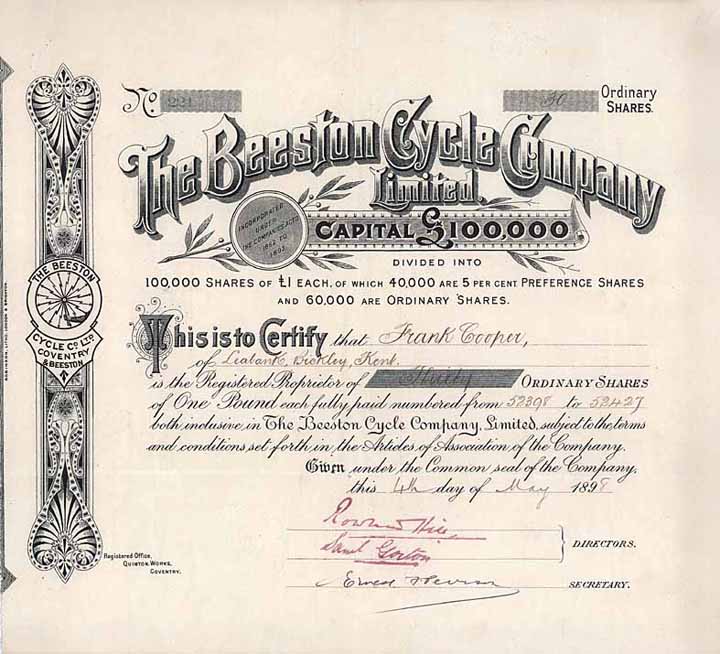 No 221
30 Ordinary
SHARES.
The Beeston Cycle Company
Limited.
INCORPORATED
UNDER
THE COMPANIES ACTS
1862 TO
1893.
CAPITAL £100,000
DIVIDED INTO
100,000 SHARES OF £1 EACH, OF WHICH 40,000 ARE 5 PER CENT PREFERENCE SHARES
AND 60,000 ARE ORDINARY SHARES.
This is to Certify that Frank Cooper,
of Leabank, Bickley, Kent.
is the Registered Proprietor of Thirty ORDINARY SHARES
of One Pound each fully paid numbered from 52398 to 52427
both inclusive in The Beeston Cycle Company, Limited, subject to the terms
and conditions set forth in the Articles of Association of the Company.
Given under the Common seal of the Company,
this 4th day of May 1898
Rowland Hill
Saml Gorton
DIRECTORS.
Ernest
SECRETARY.
THE BEESTON
CYCLE CO LTD
COVENTRY
& BEESTON
Registered Office,
QUINTON WORKS,
COVENTRY.